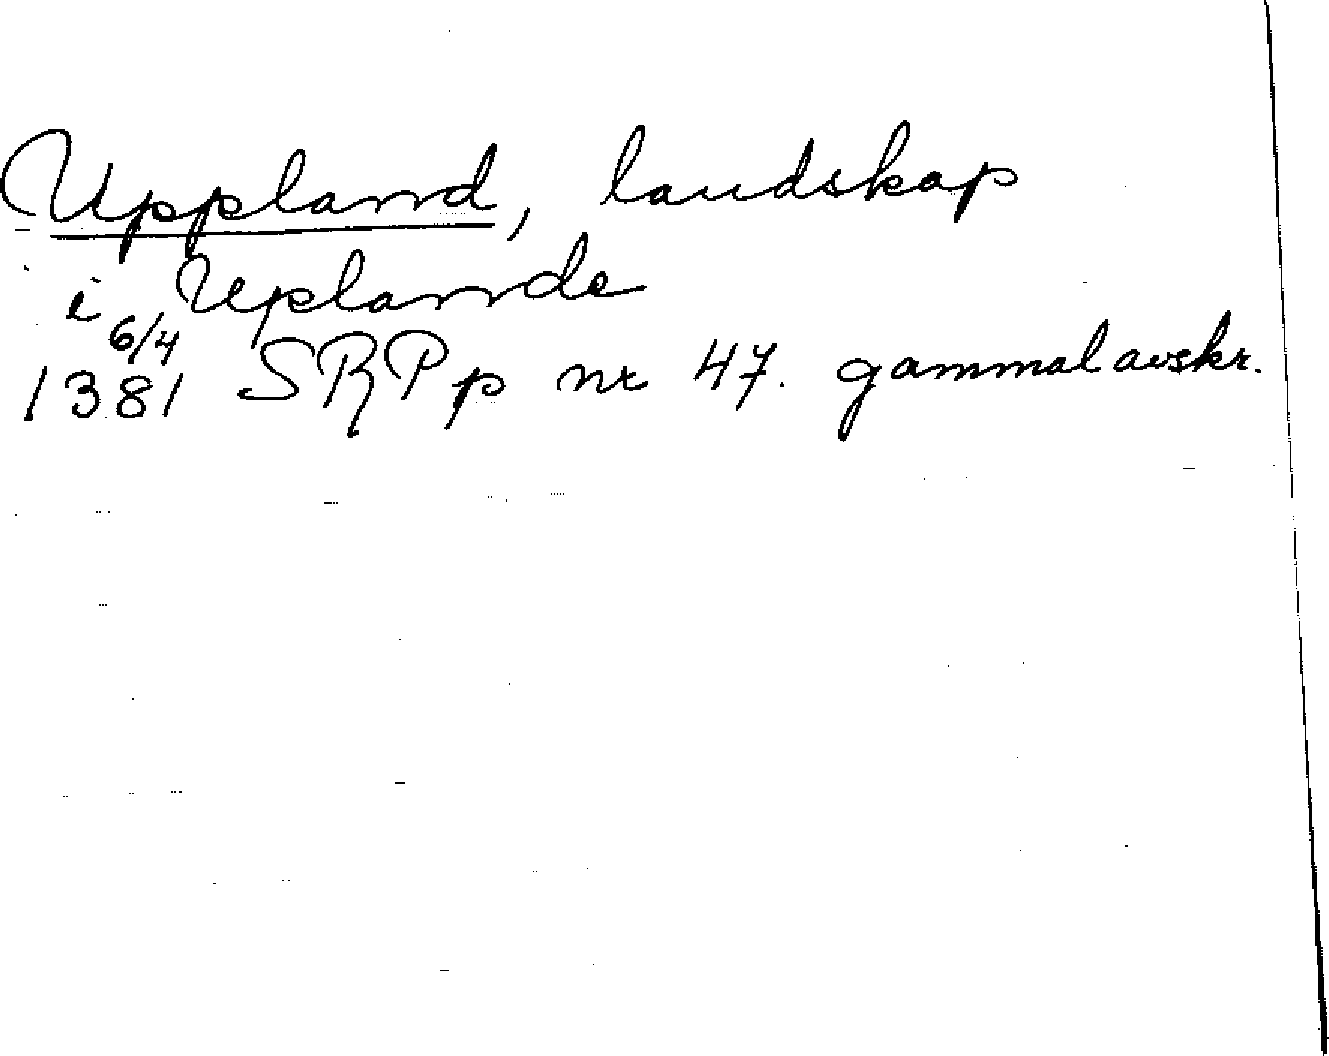 Uppland, landskap
i Uplande
6/4
1381 SRPp nr 47. gammal avskr.